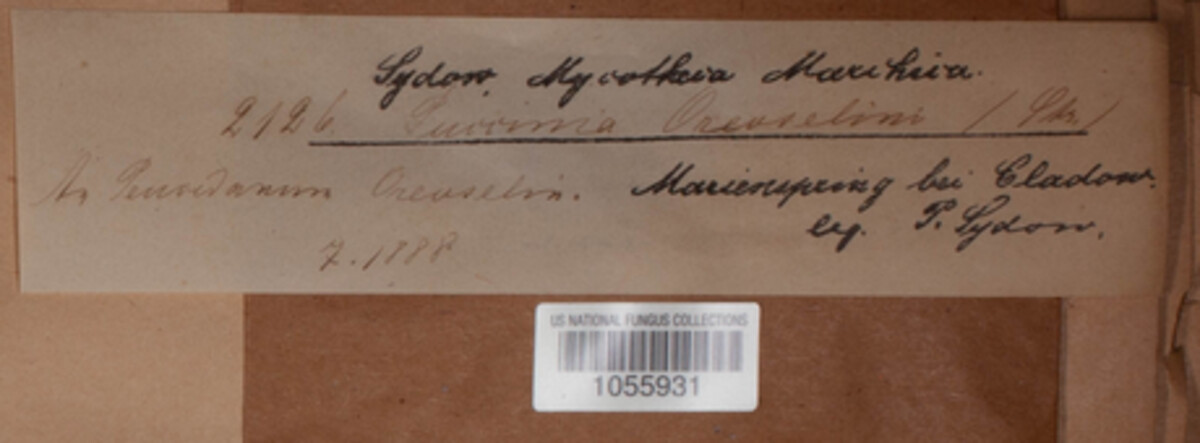 Sydow, Mycotheca Marchica.
2126. Puccinia Oreoselini (Str.)
An Peucedanum Oreoselin. Marienspring bei Cladow.
7. 1888 leg. P. Sydow.
US NATIONAL FUNGUS COLLECTIONS
1055931